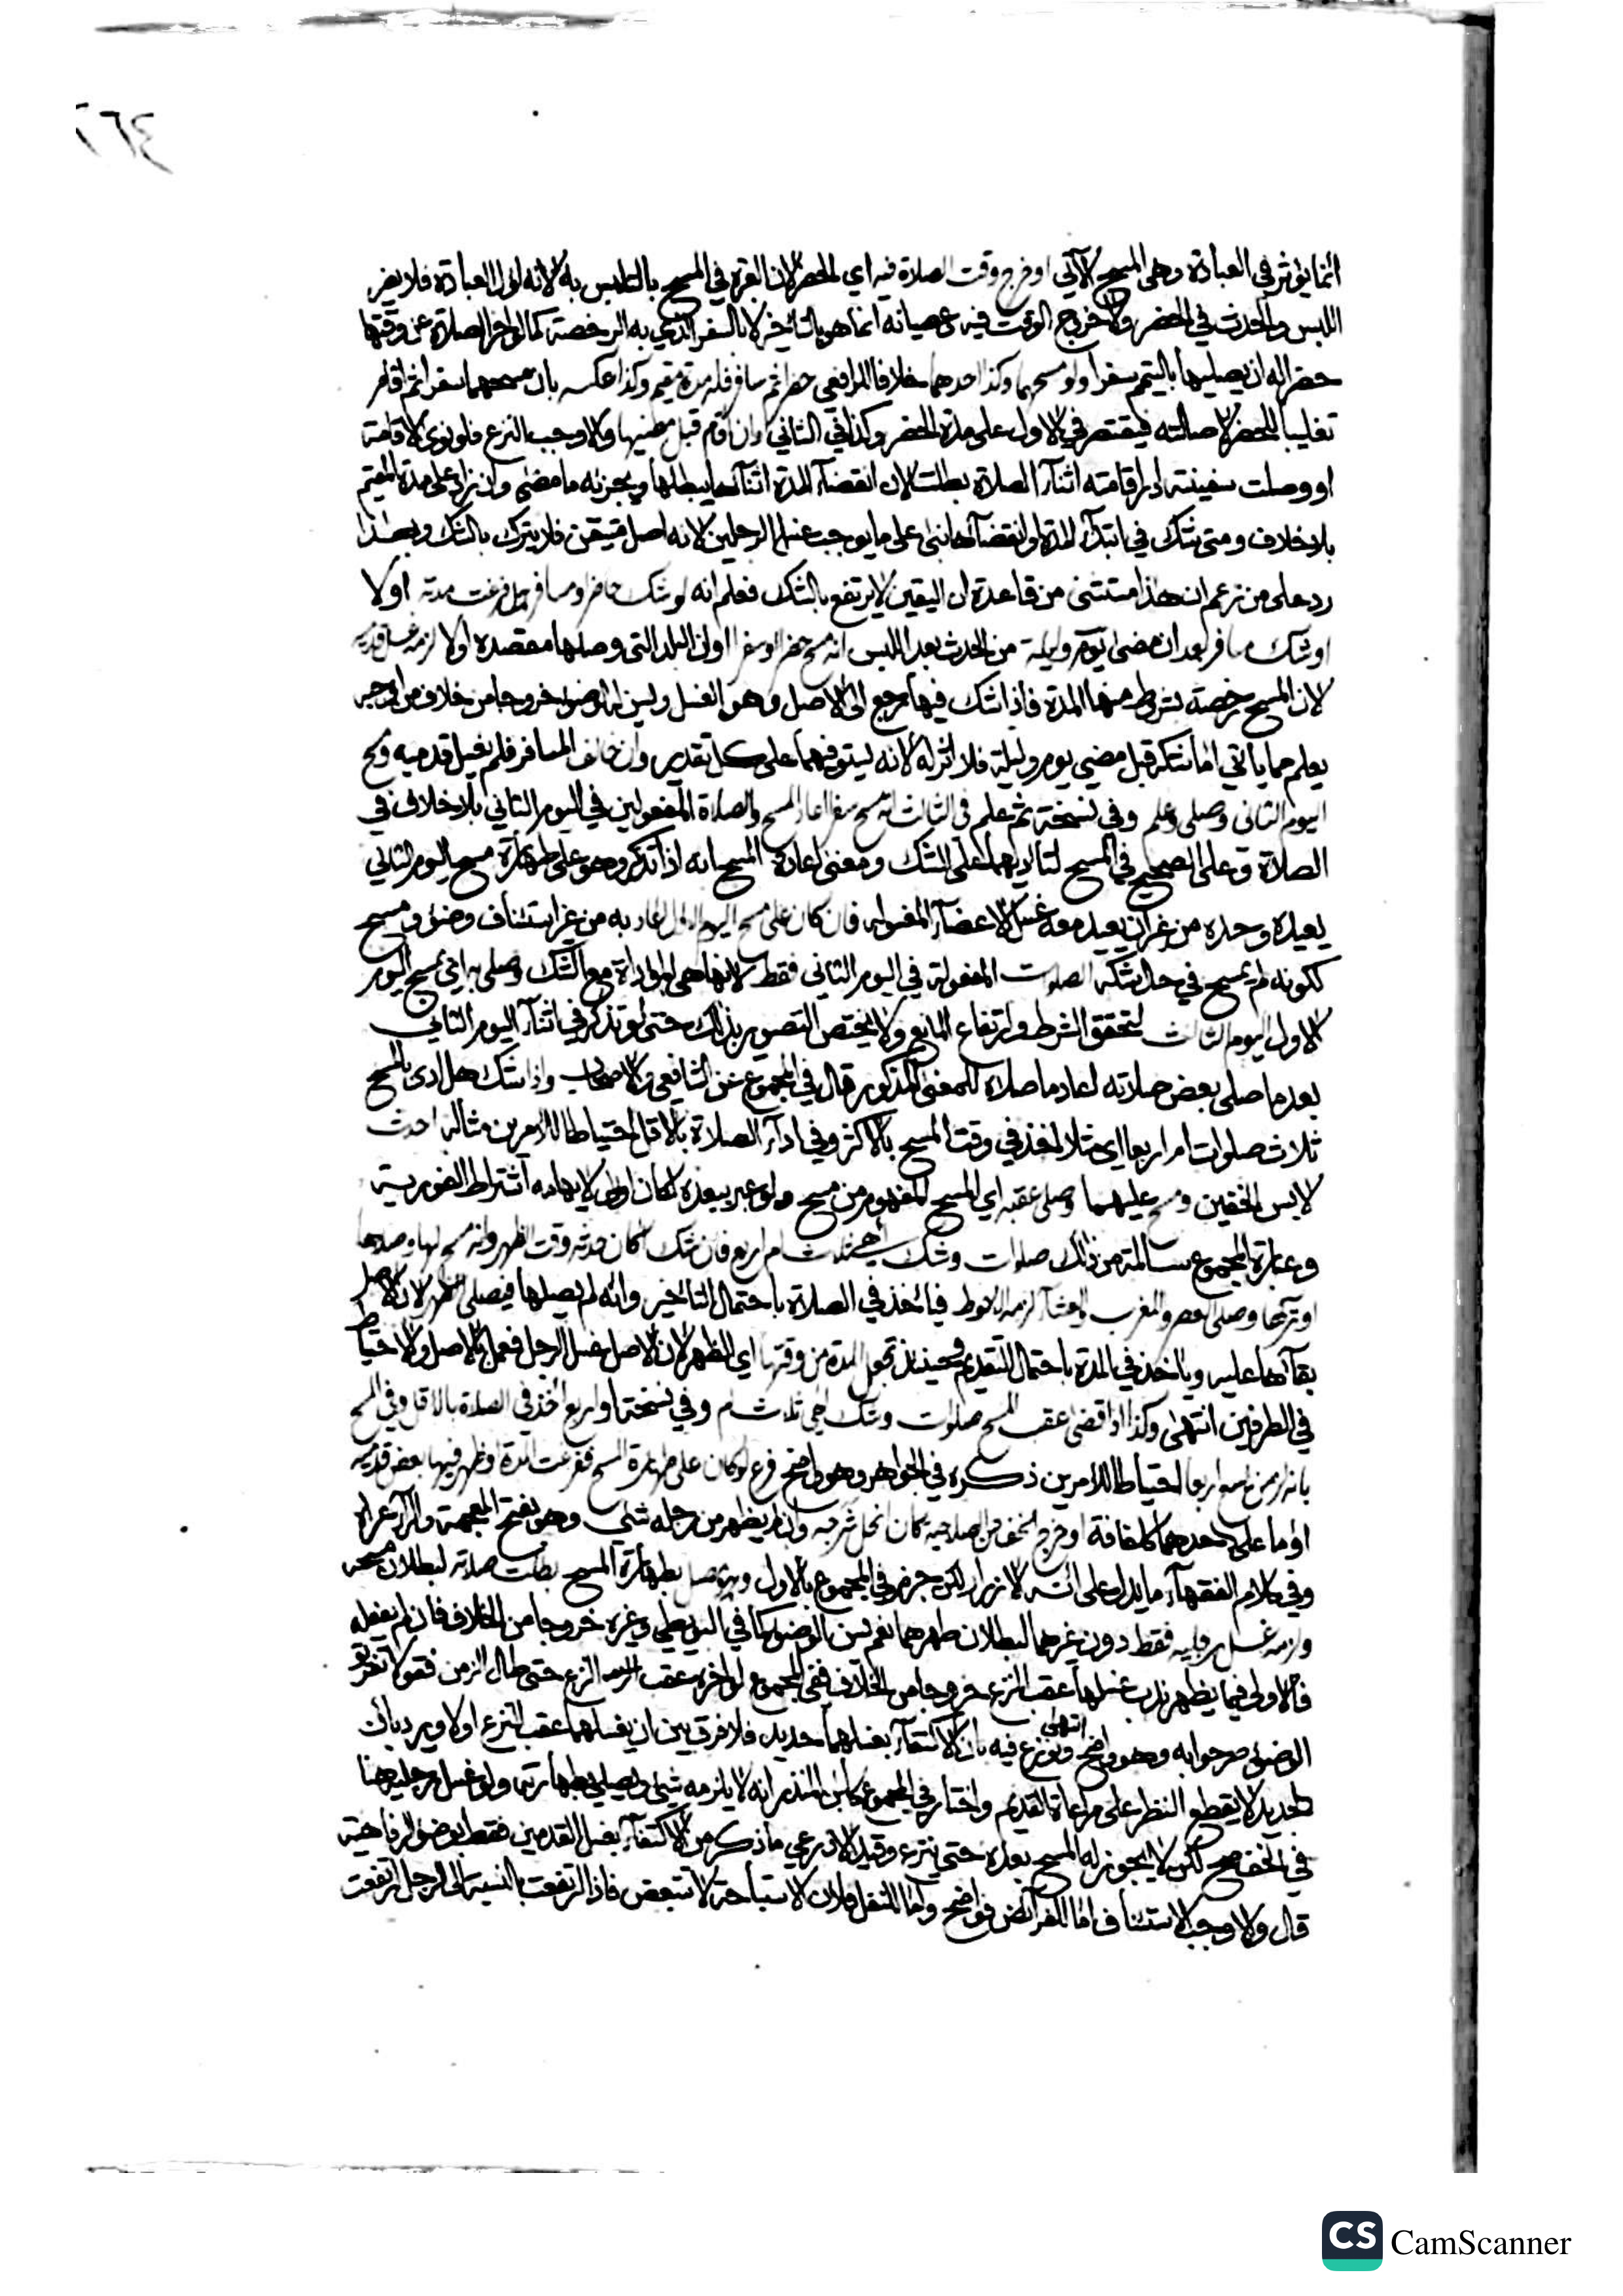 ٣٦٤
انما يؤثر في العبادة وهى المسح الآتي او خرج وقت الصلاة فيه اي الحضر لان العبرة في المسح بالتلبس به لانه اول العبادة فلا يضر
اللبس والحدث في الحضر ولا خروج الوقت فيه وعصيانه انما هو بالتأخير لا بالسفر الذي به الرخصة كما لو اخر الصلاة عن وقتها
حضرا له ان يصليها بالتيمم سفرا ولو مسحهما وكذا احدهما خلافا للرافعي حضرا ثم سافر فله مدة مقيم وكذا عكسه بان مسحهما سفرا ثم اقام
تغليبا للحضر لاصالته فيقتصر في الاول على مدة الحضر وكذا في الثاني ان اقام قبل مضيها والا وجب النزع فلو نوى الاقامة
او وصلت سفينته دار اقامته اثناء الصلاة بطلت لان انقضاء المدة اثناءها يبطلها ويجزئه ما مضى وان زاد على مدة المقيم
بلا خلاف ومتى شك في ابتداء المدة او انقضائها بنى على ما يوجب غسل الرجلين لانه اصل متيقن فلا يترك بالشك وبهذا
رد على من زعم ان هذا مستثنى من قاعدة ان اليقين لا يرتفع بالشك فعلم انه لو شك حاضر او مسافر هل فرغت مدته اولا
او شك مسافر بعد ان مضى يوم وليلة من الحدث بعد اللبس انه مسح حضرا او سفرا او ان البلد التى وصلها مقصده اولا لزمه غسل قدميه
لان المسح رخصة بشروط منها المدة فاذا شك فيها رجع الى الاصل وهو الغسل وليس له الوضوء خروجا من خلاف من اوجبه
يعلم مما ياتي اما شكه قبل مضي يوم وليلة فلا اثر له لانه يستوفيهما على كل تقدير وان خالف المسافر فلم يغسل قدميه ومسح
اليوم الثاني وصلى وعلم وفي نسخة ثم علم فى الثالث انه مسح سفرا اعاد المسح والصلاة المفعولين في اليوم الثاني بلا خلاف في
الصلاة وعلى الصحيح في المسح لتأديهما على الشك ومعنى اعادة المسح انه اذا تذكر وهو على طهارة مسح اليوم الثاني
يعيده وحده من غير ان يعيد معه غسل الاعضاء المغسولة فان كان على مسح اليوم الاول اعاد به من غير استئناف وضوء ومسح
ككونه لم يمسح في حال شكه الصلوات المفعولة في اليوم الثاني فقط لانها هى المؤداة مع الشك وصلى به اي بمسح اليوم
الاول اليوم الثالث لتحقق الشرط وارتفاع المانع ولا يختص التصوير بذلك حتى لو تذكر في اثناء اليوم الثاني
بعد ما صلى بعض صلاته اعاد ما صلاه للمعنى المذكور قال في المجموع عن الشافعي والاصحاب واذا شك هل ادى بالمسح
ثلاث صلوات ام اربعا اي مثلا اخذ في وقت المسح بالاكثر وفي اداء الصلاة بالاقل احتياطا للامرين مثاله احدث
لابس الخفين ومسح عليهما وصلى عقبه اي المسح المفهوم من مسح ولو عبر ببعده لكان اولى لايهامه اشتراط الفورية
وعبارة المجموع سالمة من ذلك صلوات وشك اهي ثلاث ام اربع فان شك اكان حدثه وقت الظهر وانه مسح لها وصلاها
او تركها وصلى العصر والمغرب والعشاء لزمه الاحوط فيأخذ في الصلاة باحتمال التاخير وانه لم يصلها فيصلى الظهر لان الاصل
بقاءها عليه وياخذ في المدة باحتمال التقديم وحينئذ تجعل المدة من وقتها اي الظهر لان الاصل غسل الرجل فعمل بالاصل والاحتياط
في الطرفين انتهى وكذا اذا قضى عقب المسح صلوات وشك اهي ثلاث ام وفي نسخة او اربع اخذ في الصلاة بالاقل وفي المسح
احتياطا للامرين ذكره في الجواهر وهو واضح فرع لو كان على طهارة المسح ففرغت المدة او ظهر فيها بعض قدميه
او ما على احدهما كلفافة او خرج الخف عن الصلاحية كان انحل شرجه وان لم يظهر من رجله شئ وهو بفتح المعجمة والراء عراه
وفي كلام الفقهاء ما يدل على انه الازرار لكن جزم في المجموع بالاول وهو يصل بطهارة المسح بطلت صلاته لبطلان مسحه
ولزمه غسل رجليه فقط دون غيرهما لبطلان طهرهما نعم يسن الوضوء كما في البويطي وغيره خروجا من الخلاف فان لم يفعله
فالاولى فيما يظهر ندب غسلهما عقب النزع خروجا من الخلاف ففي المجموع لو اخره عقب النزع حتى طال الزمن فقولا تفريق
الوضوء صرحوا به وهو واضح انتهى ونوزع فيه بان الاكتفاء بغسلهما جديد فلا فرق بين ان يغسلهما عقب النزع اولا ويرد بان
الجديد لا يقطع النظر على مراعاة القديم واختار في المجموع كابن المنذر انه لا يلزمه شئ ويصلي بطهارته ولو غسل رجليه هنا
في الخف صح لكن لا يجوز له المسح بعده حتى ينزع وقيد الاذرعي ما ذكر من الاكتفاء بغسل القدمين فقط بوضوء الرفاهية
قال والا وجب الاستئناف اما للفرائض فواضح واما للنفل فلان الاستباحة لا تتبعض فاذا ارتفعت بالنسبة الى الرجل ارتفعت
CamScanner